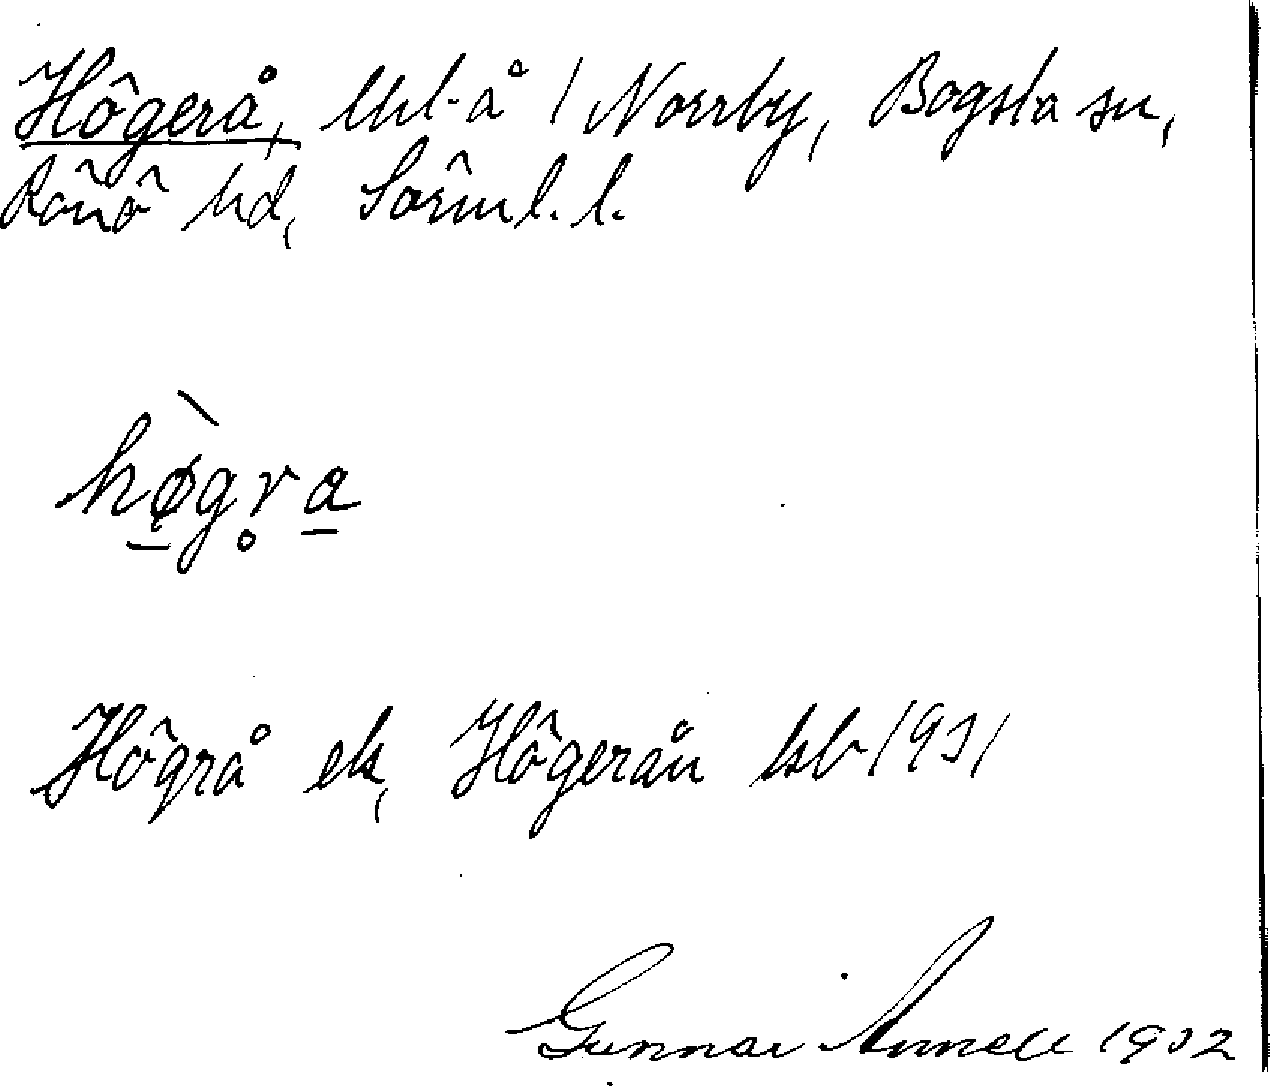 Högerå, lht-å / Norrby, Bogsta sn,
Rönö hd, Sörml. l.
hø̀gr̥a
Högrå ek, Högerån kb 1931
Gunnar Annell 1932